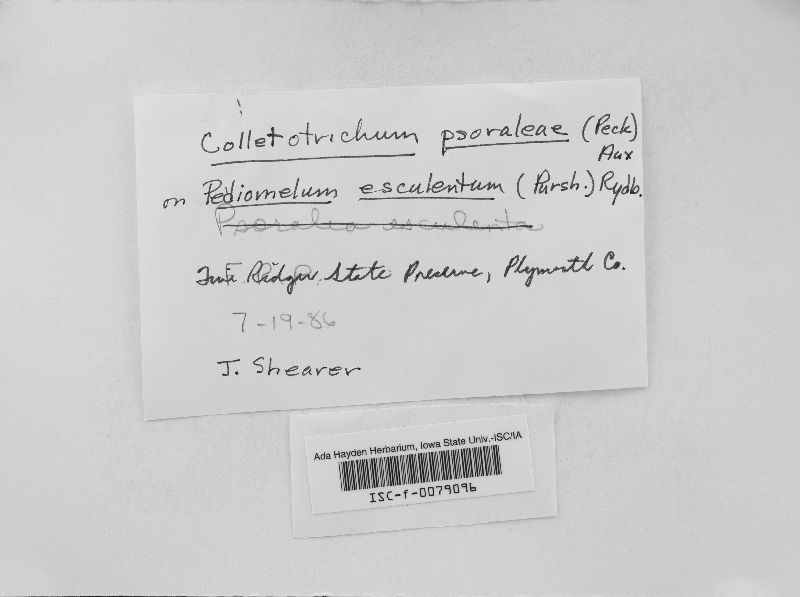 Colletotrichum psoraleae (Peck)
Aax
on Pediomelum esculentum (Pursh.) Rydb.
Psoralea esculenta
Ridge State Preserve, Plymouth Co.
7-19-86
J. Shearer
Ada Hayden Herbarium, Iowa State Univ.-ISC/IA
ISC-f-0079096